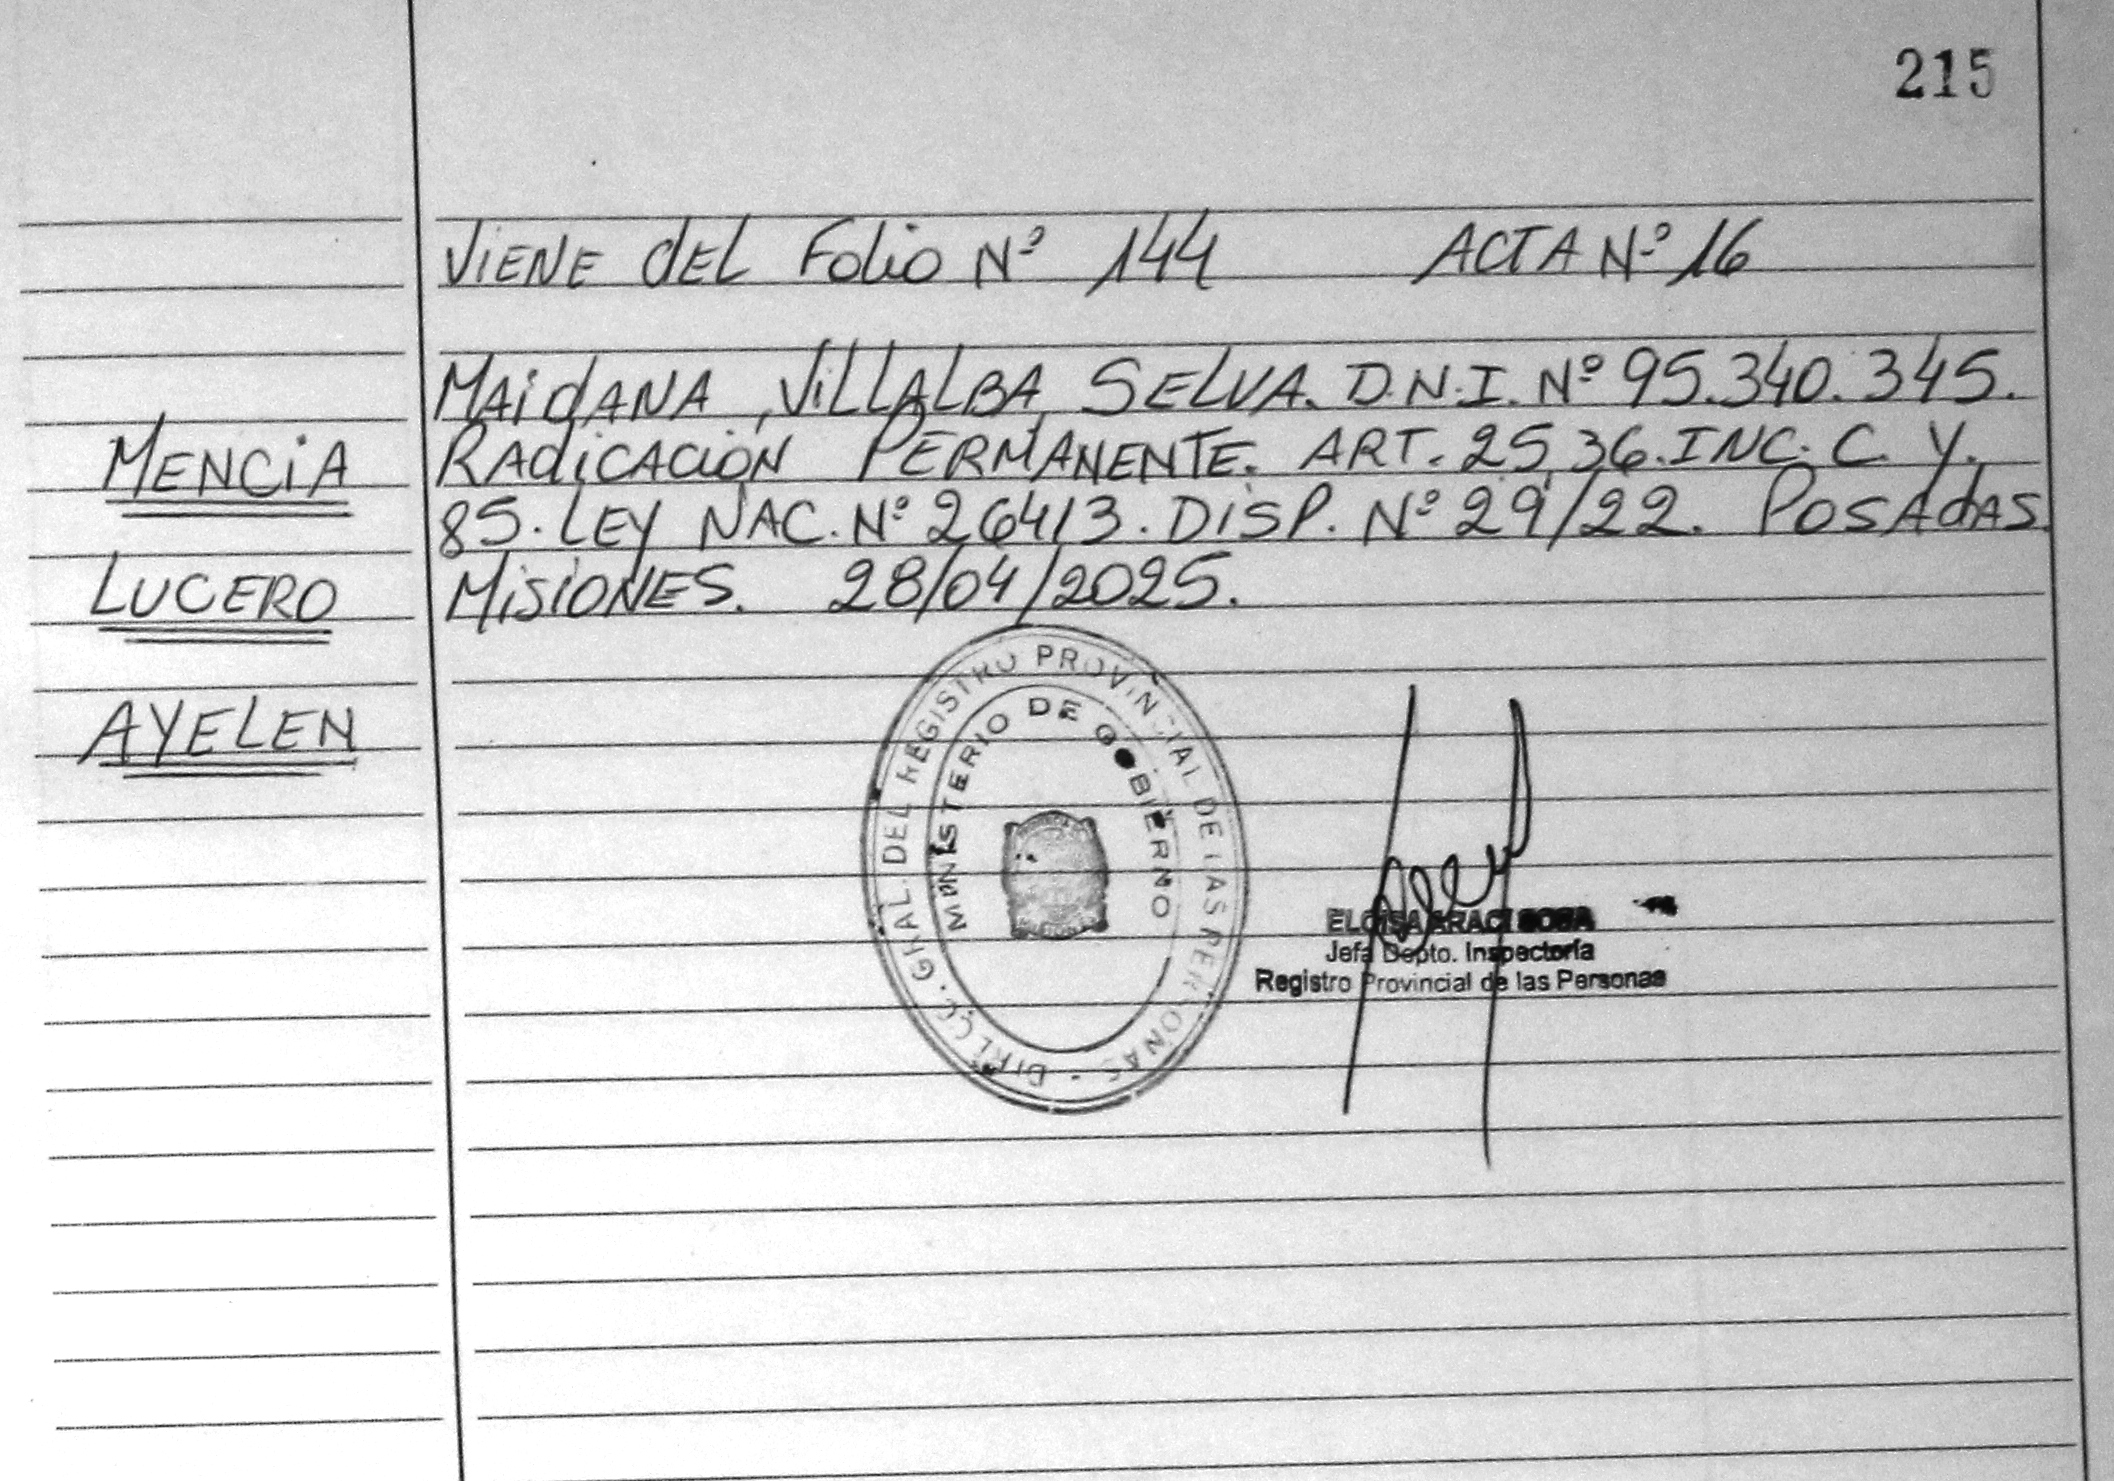 215
VIENE DEL FOLIO Nº 144 ACTA Nº 16
MAIDANA, VILLALBA, SELVA. D.N.I. Nº 95.340.345.
MENCIA
RADICACIÓN PERMANENTE. ART. 25,36.INC. C. Y.
85. LEY NAC. Nº 26413. DISP. Nº 29/22. POSADAS
LUCERO
MISIONES. 28/04/2025.
AYELEN
DIRECC. GRAL. DEL REGISTRO PROVINCIAL DE LAS PERSONAS
MINISTERIO DE GOBIERNO
ELOISA ARACI SOSA
Jefa Depto. Inspectoría
Registro Provincial de las Personas